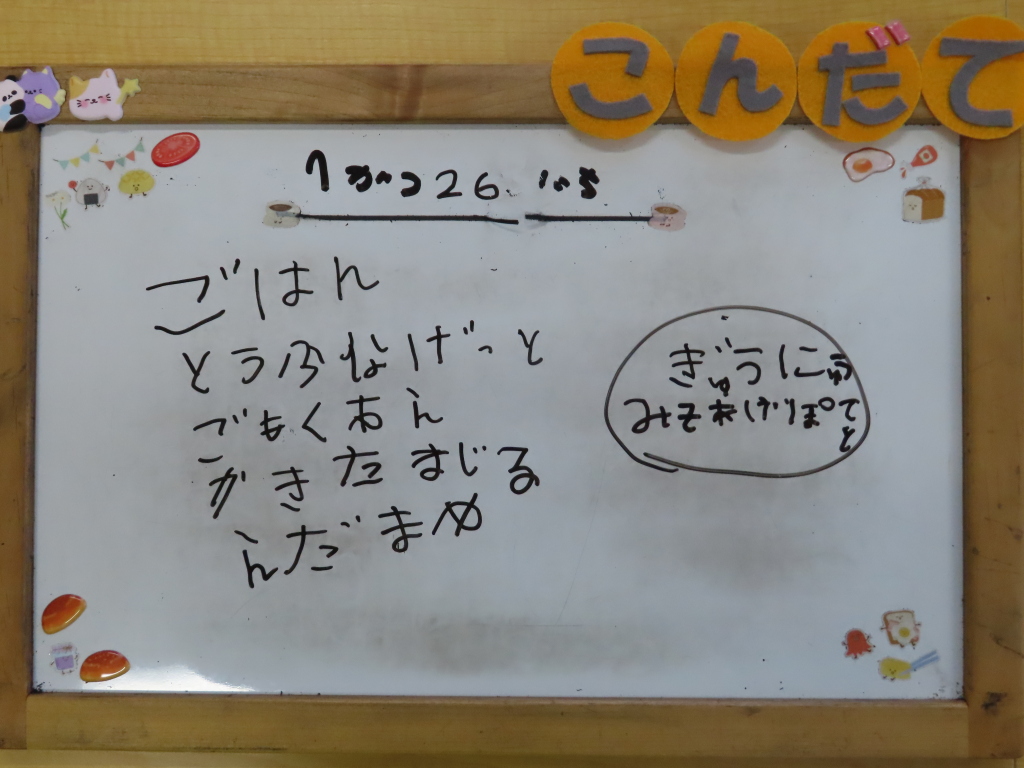 こんだて
7がつ26にち
ごはん
とうふなげっと
ごもくあん
かきたまじる
えだまめ
ぎゅうにゅう
みそあげぽてと